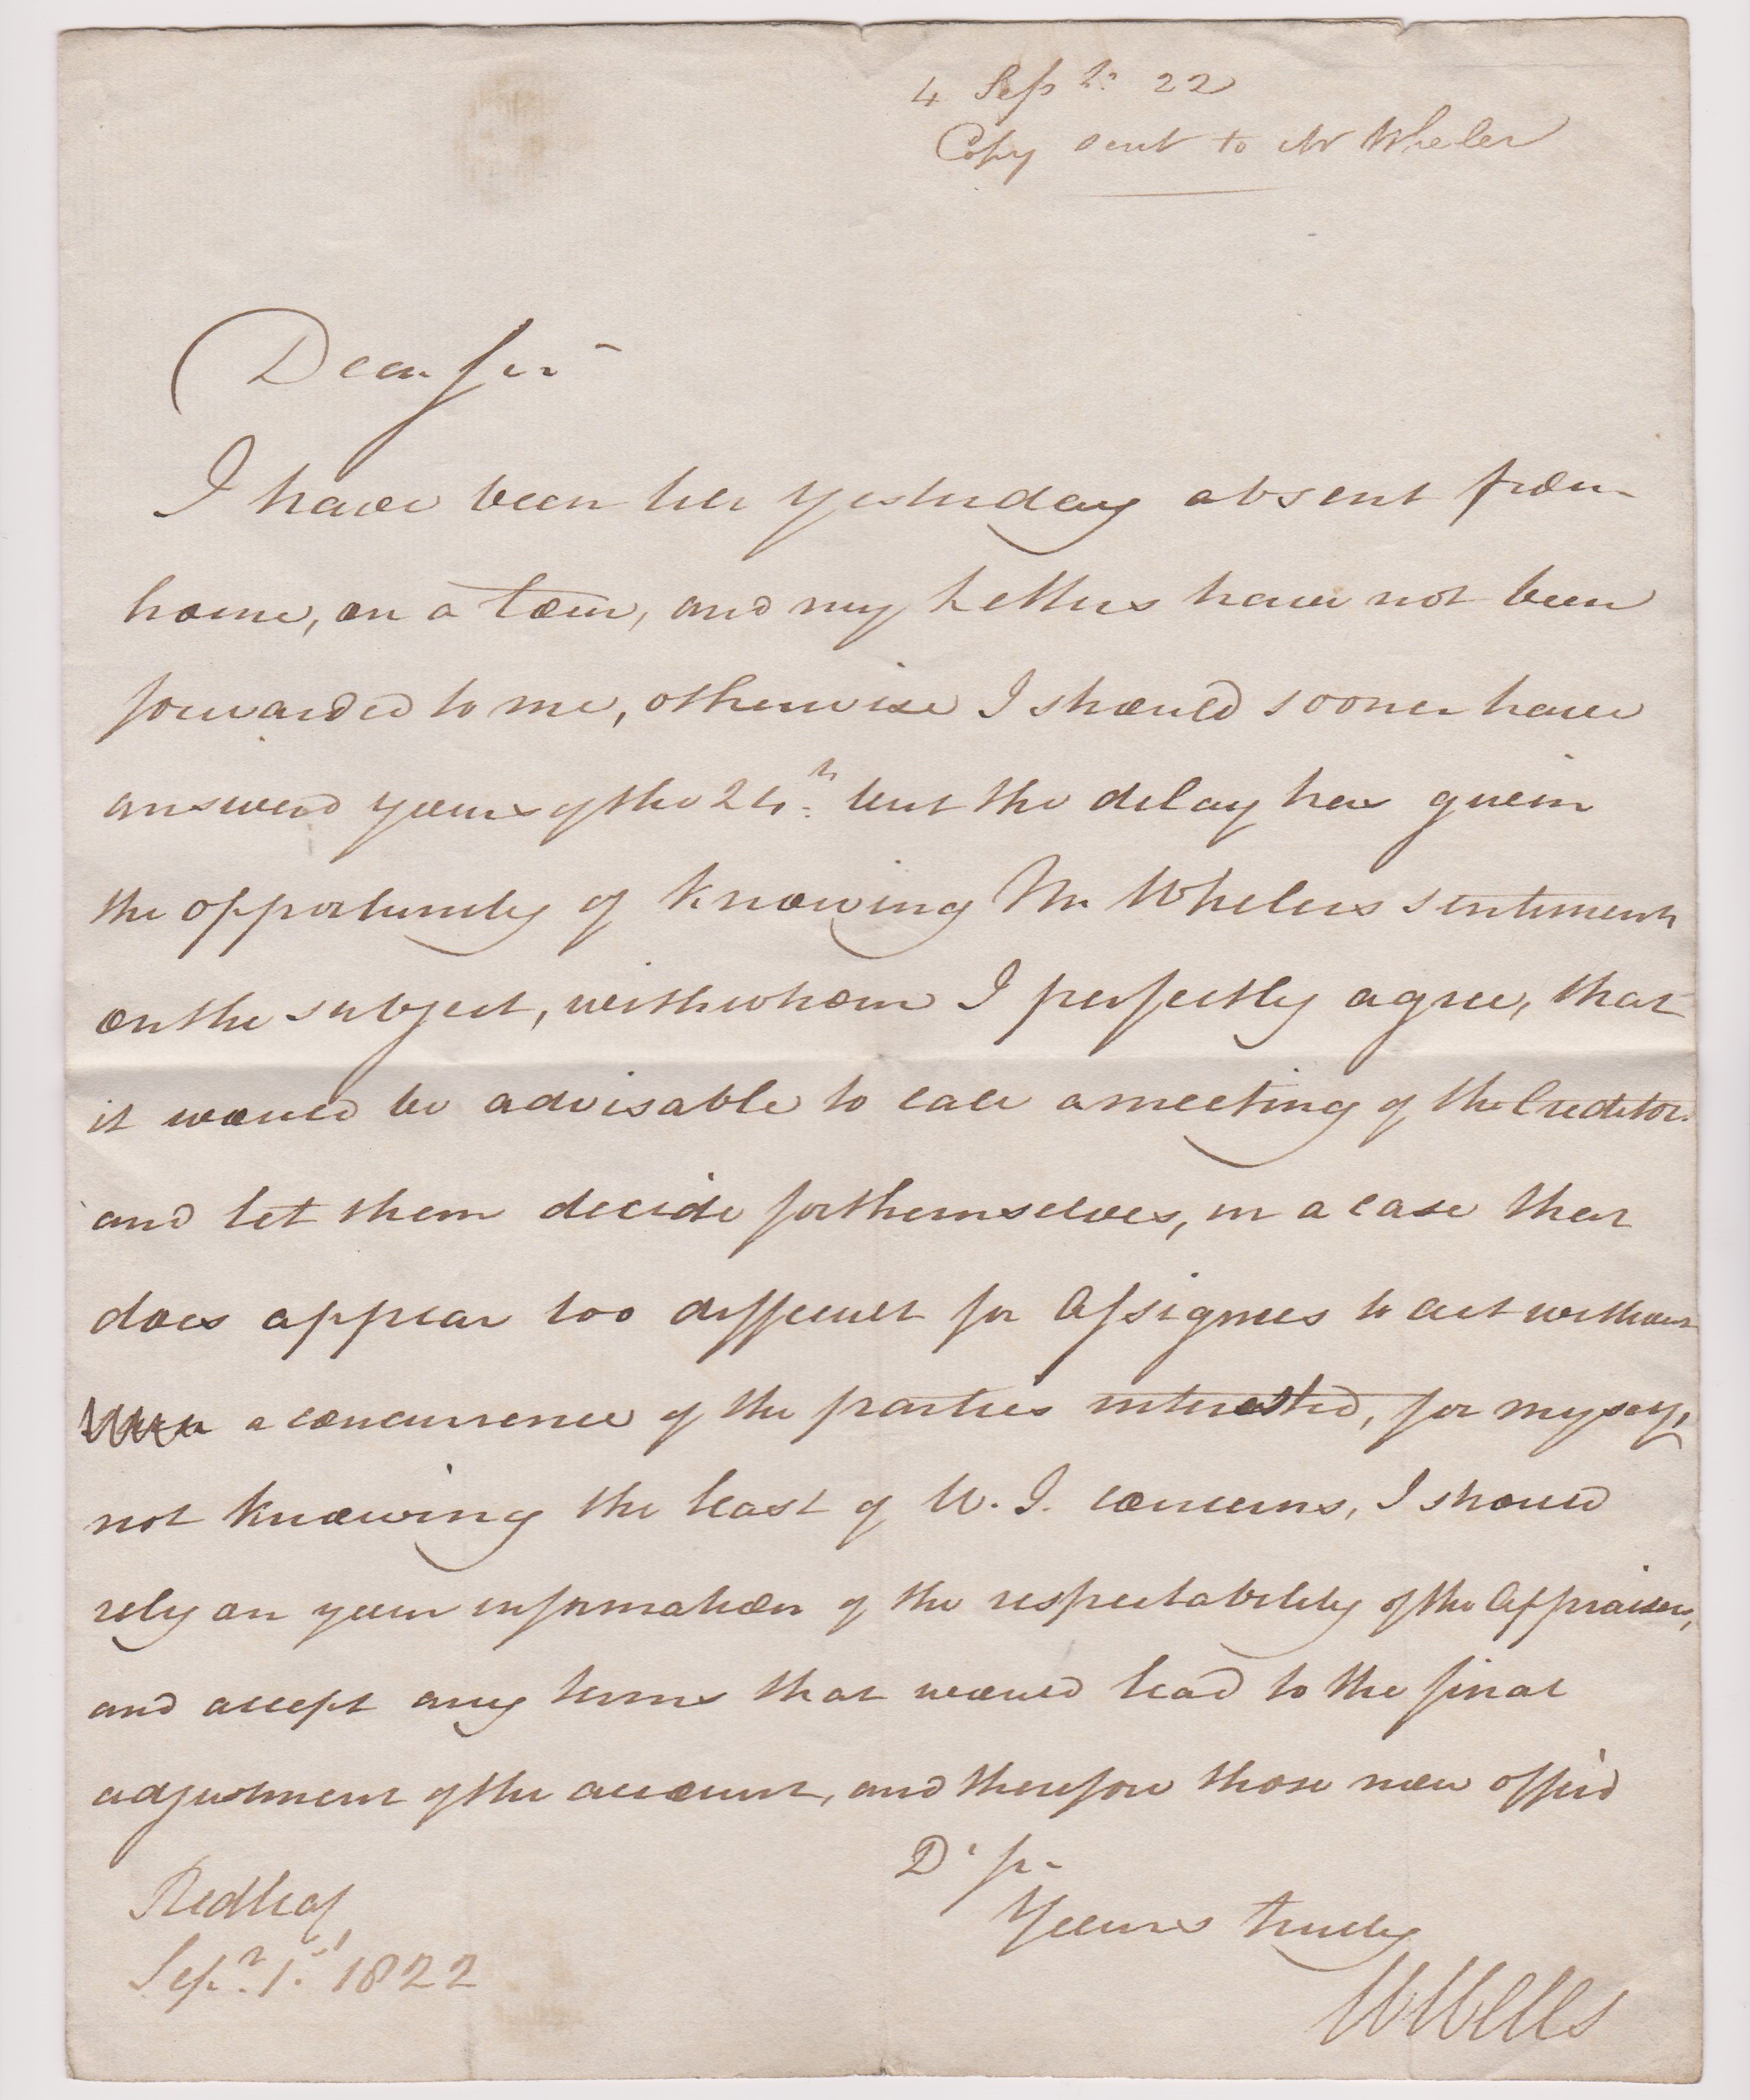 4 Sepr. 22
Copy sent to Mr Wheler
Dear Sir
I have been till yesterday absent from
home, on a tour, and my Letters have not been
forwarded to me, otherwise I should sooner have
answerd yours of the 24th. but the delay has given
the opportunity of knowing Mr. Whelers sentiments
on the subject, with whom I perfectly agree, that
it would be advisable to call a meeting of the Creditors.
and let them decide for themselves, in a case that
does appear too difficult for Assignees to act without
a concurrence of the parties interested, for myself,
not knowing the least of W. I. concerns, I should
rely on your information of the respectability of the Appraisers,
and accept any terms that would lead to the final
adjustment of the account, and therefore those now offerd
Dr Sr
Yours truly
W Wells
Redleaf,
Sepr. 1st. 1822